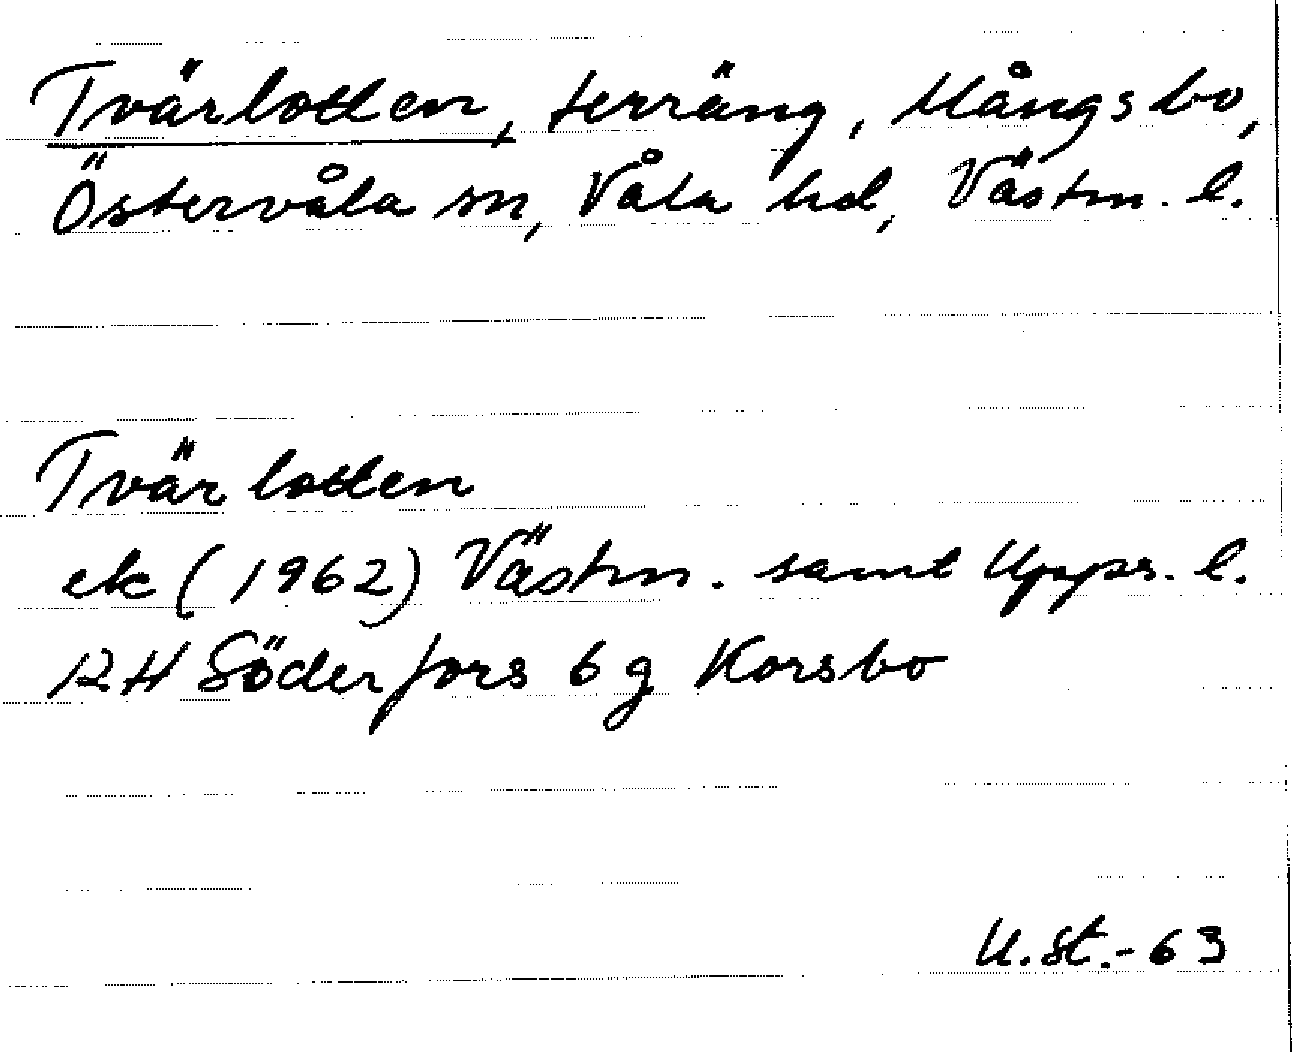 Tvärlotten, terräng, Mångsbo,
Östervåla sn, Våla hd, Västm. l.
Tvärlotten
ek (1962) Västm. samt Upps. l.
12 H Söderfors 6 g Korsbo
U.St.-63